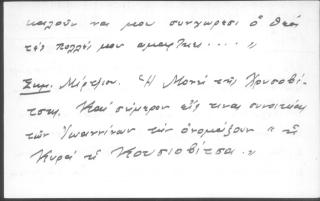 καλοῦν να μου συνχωρεσι ὁ Θεὸς
τὲς πολλές μου αμαρτιες .... "
Σημ. Μέρτζιου. "Ἡ Μονὴ τῆς Χρυσοβί-
τσης. Καὶ σήμερον εἰς τινα συνοικίαν
των Ἰωαννίνων τὴν ὀνομάζουν " τὴ
Κυρά τὴ Κουτσοβίτσα . "